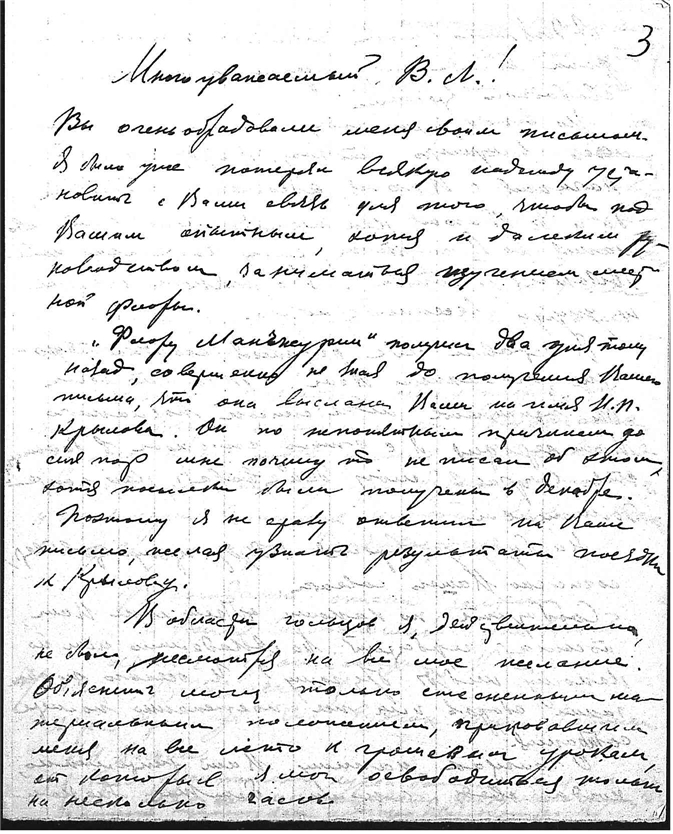 3
Многоуважаемый В. Л.!
Вы очень обрадовали меня своим письмом.
Я было уже потерял всякую надежду уста-
новить с Вами связь для того, чтобы под
Вашим опытным, хотя и далеким ру-
ководством, заниматься изучением мест-
ной флоры.
„Флору Маньжурии" получил два дня тому
назад, совершенно не зная до получения Вашего
письма, что она выслана Вами на имя И.П.
Крылова. Он по непонятным причинам до
сих пор мне почему то не писал об этом,
хотя посылки были получены в декабре.
Поэтому я не сразу ответил на Ваше
письмо, желая узнать результаты поездки
к Крылову.
В области гольцов я, действительно,
не был, несмотря на все мое желание.
Объяснить могу только стесненным ма-
териальным положением, приковавшим
меня на все лето к грошевым урокам,
от которых я мог освободиться только
на несколько часов